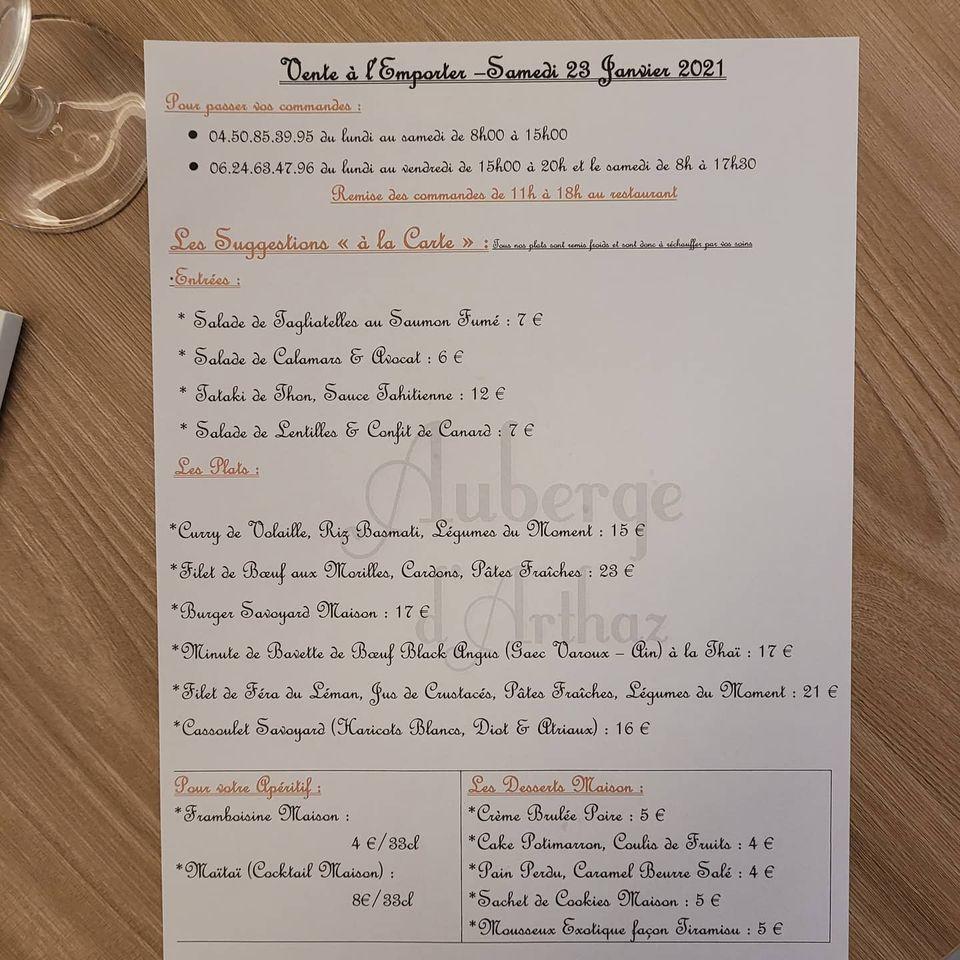 Vente à l'Emporter –Samedi 23 Janvier 2021
Pour passer vos commandes :
• 04.50.85.39.95 du lundi au samedi de 8h00 à 15h00
• 06.24.63.47.96 du lundi au vendredi de 15h00 à 20h et le samedi de 8h à 17h30
Remise des commandes de 11h à 18h au restaurant
Les Suggestions « à la Carte » : Tous nos plats sont remis froids et sont donc à réchauffer par vos soins
·Entrées :
* Salade de Tagliatelles au Saumon Fumé : 7 €
* Salade de Calamars & Avocat : 6 €
* Tataki de Thon, Sauce Tahitienne : 12 €
* Salade de Lentilles & Confit de Canard : 7 €
Les Plats :
Auberge
d'Arthaz
*Curry de Volaille, Riz Basmati, Légumes du Moment : 15 €
*Filet de Bœuf aux Morilles, Cardons, Pâtes Fraîches : 23 €
*Burger Savoyard Maison : 17 €
*Minute de Bavette de Bœuf Black Angus (Gaec Varoux – Ain) à la Thaï : 17 €
*Filet de Féra du Léman, Jus de Crustacés, Pâtes Fraîches, Légumes du Moment : 21 €
*Cassoulet Savoyard (Haricots Blancs, Diot & Atriaux) : 16 €
Pour votre Apéritif :
*Framboisine Maison :
4 €/33cl
*Maïtaï (Cocktail Maison) :
8€/33cl
Les Desserts Maison :
*Crème Brulée Poire : 5 €
*Cake Potimarron, Coulis de Fruits : 4 €
*Pain Perdu, Caramel Beurre Salé : 4 €
*Sachet de Cookies Maison : 5 €
*Mousseux Exotique façon Tiramisu : 5 €